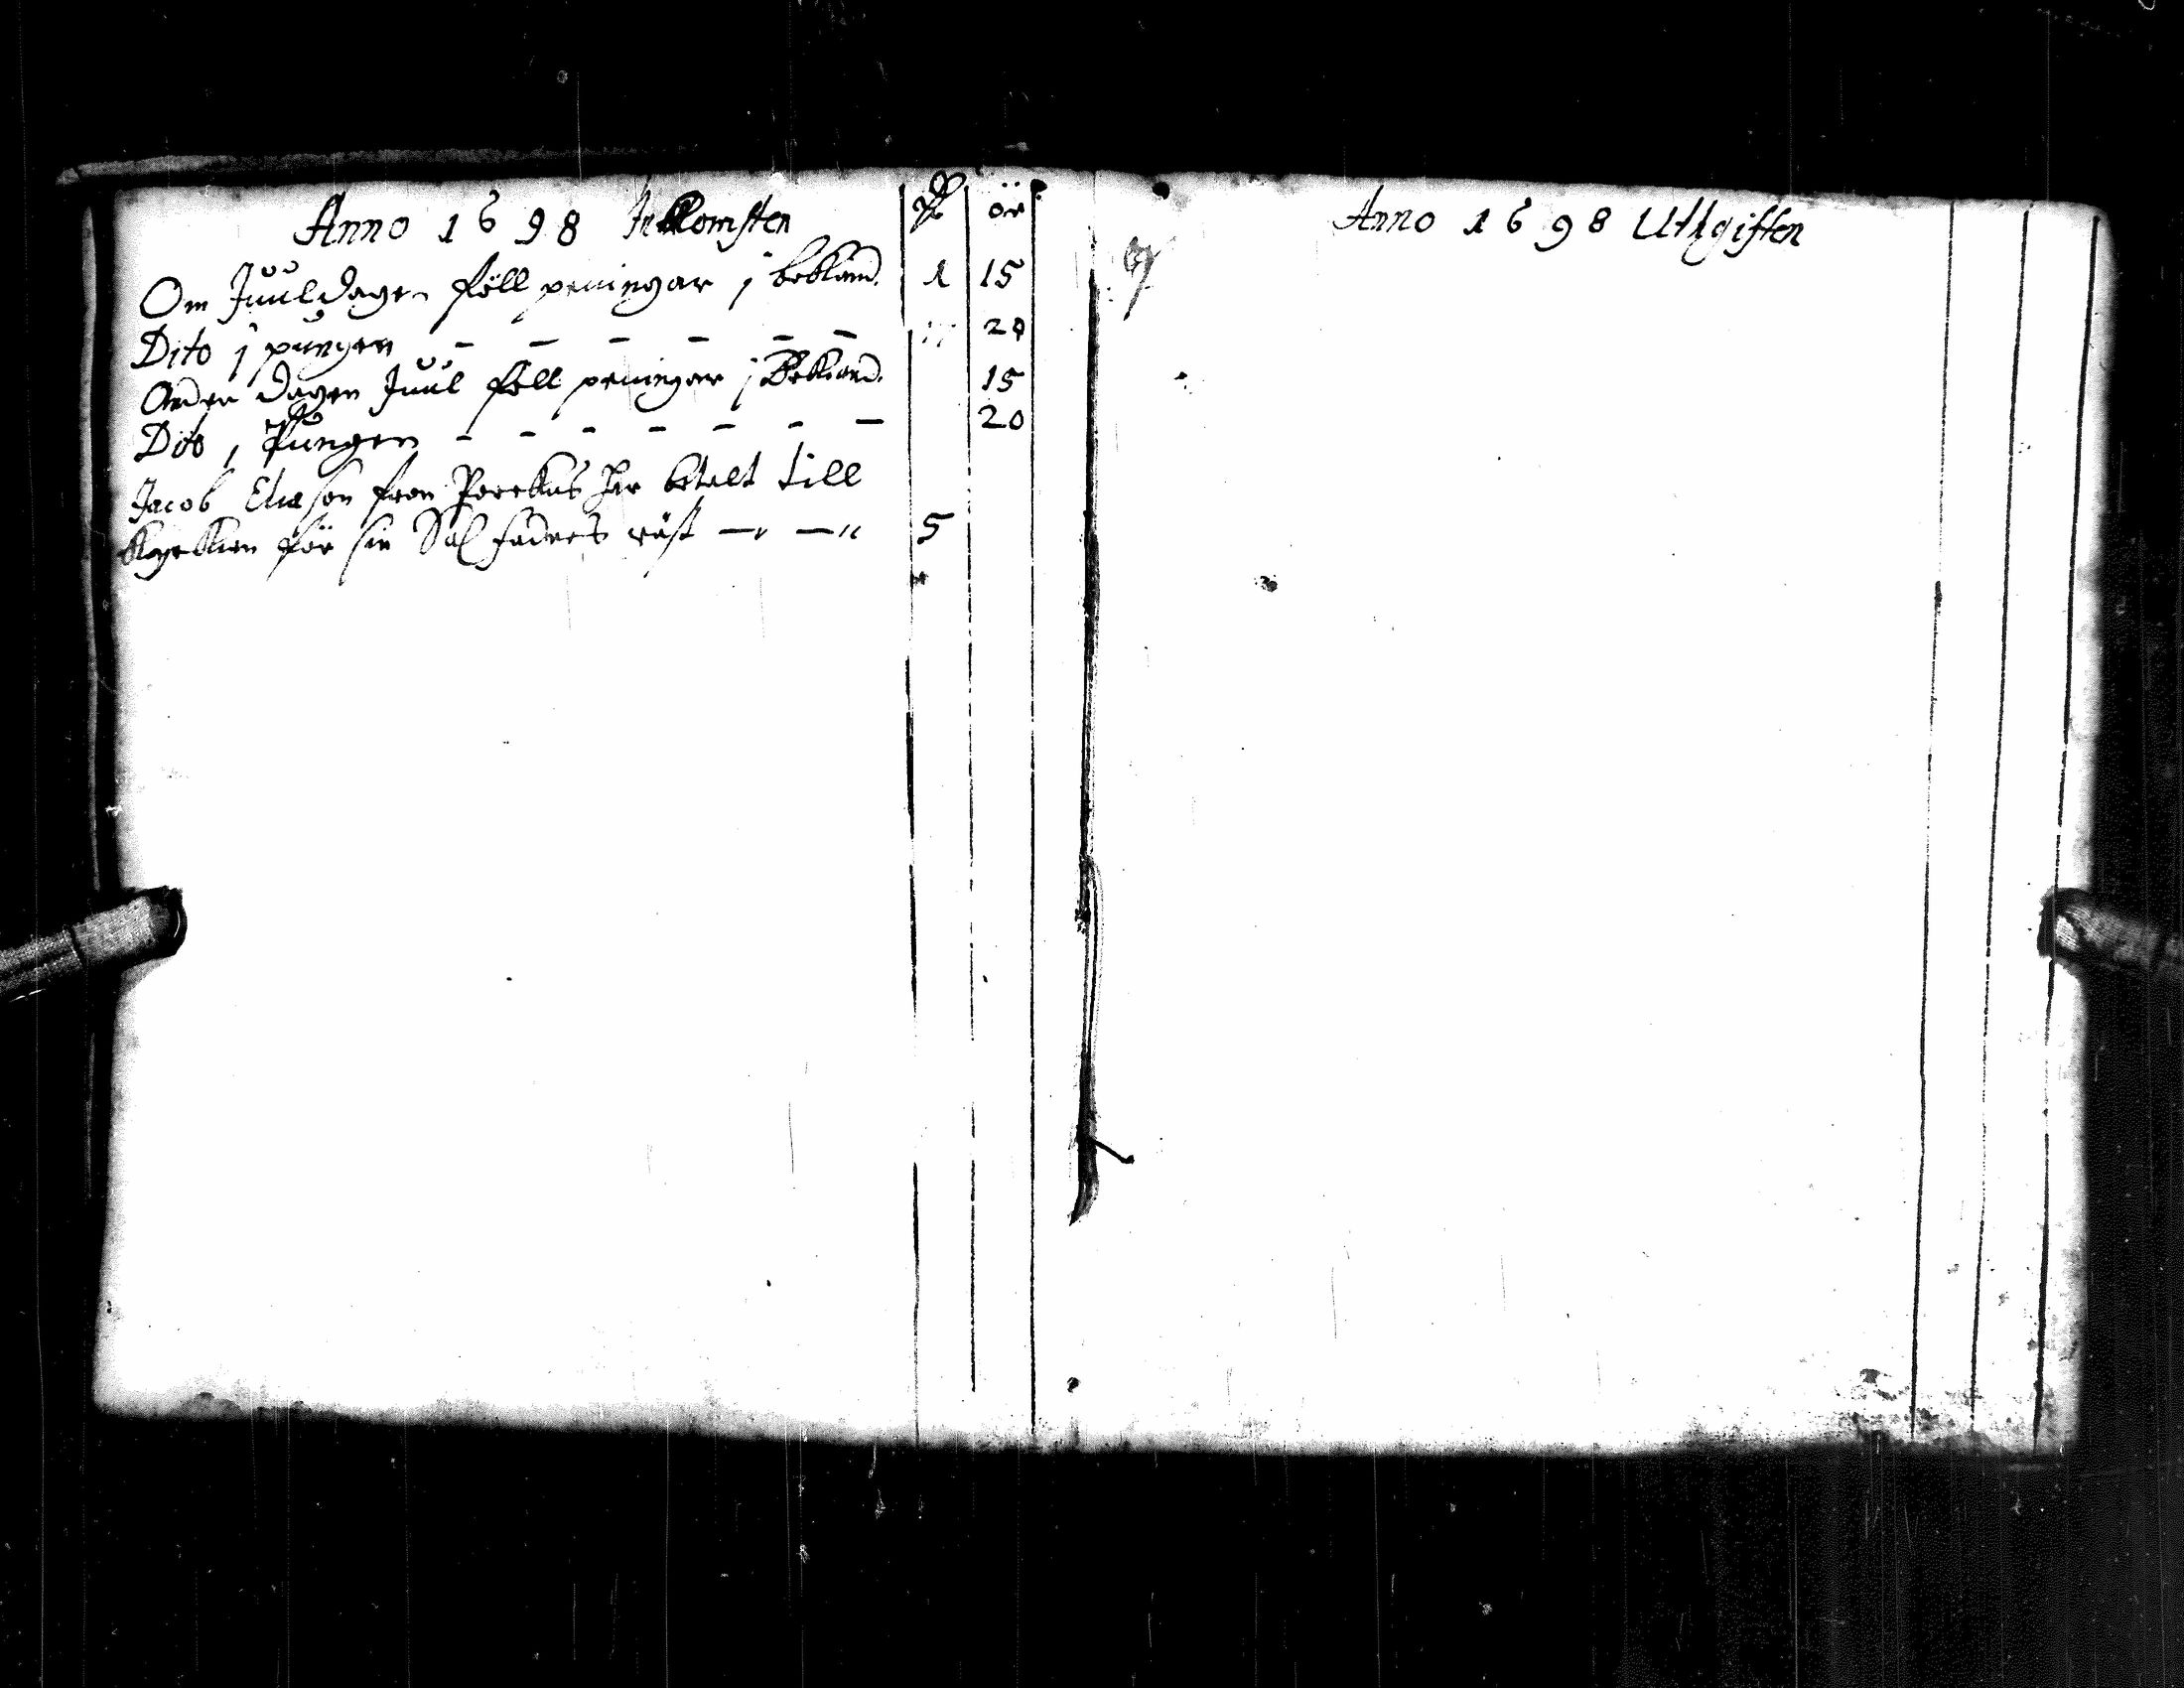 Anno 1698 Inkomsten ör
Om Juuldagen föll peningar j bekland. 1 15
Dito j pungen - - - - - - 20
Andra dagen Juul föll peningar j Bekland. 15
Dito j Pungen - - - - - - - 20
Jacob Eliason fron Porckas har betalt till
Kyrkian för sin Sal faders röst — — 5
Anno 1698 Uthgiften